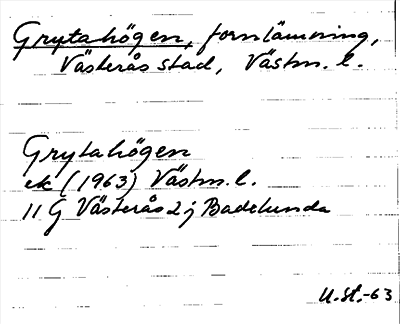 Grytahögen, fornlämning,
Västerås stad, Västm. l.
Grytahögen
ek (1963) Västm. l.
11 G Västerås 2 j Badelunda
U.St.-63